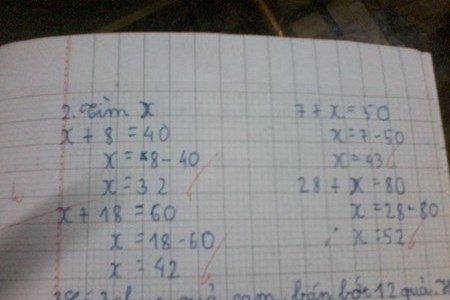 2. Tìm x
x + 8 = 40
x = 8 - 40
x = 32
x + 18 = 60
x = 18 - 60
x = 42
7 + x = 50
x = 7 - 50
x = 43
28 + x = 80
x = 28 - 80
x = 52
bán bớt 12 quả